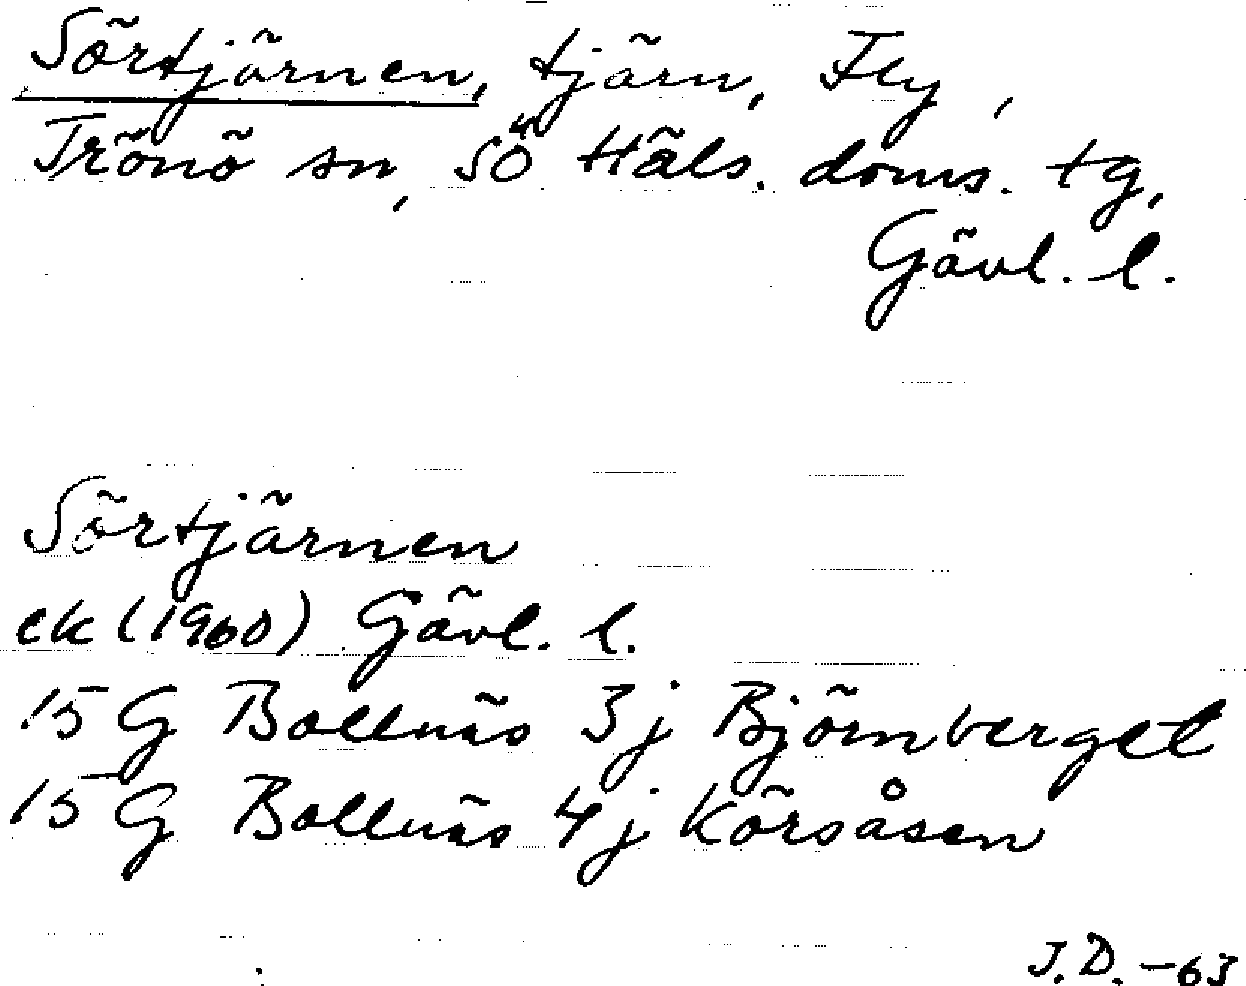 Sörtjärnen, tjärn, Fly,
Trönö sn, SÖ Häls. doms. tg,
Gävl. l.
Sörtjärnen
ek (1960) Gävl. l.
15 G Bollnäs 3j Björnberget
15 G Bollnäs 4j Körsåsen
J.D. -63